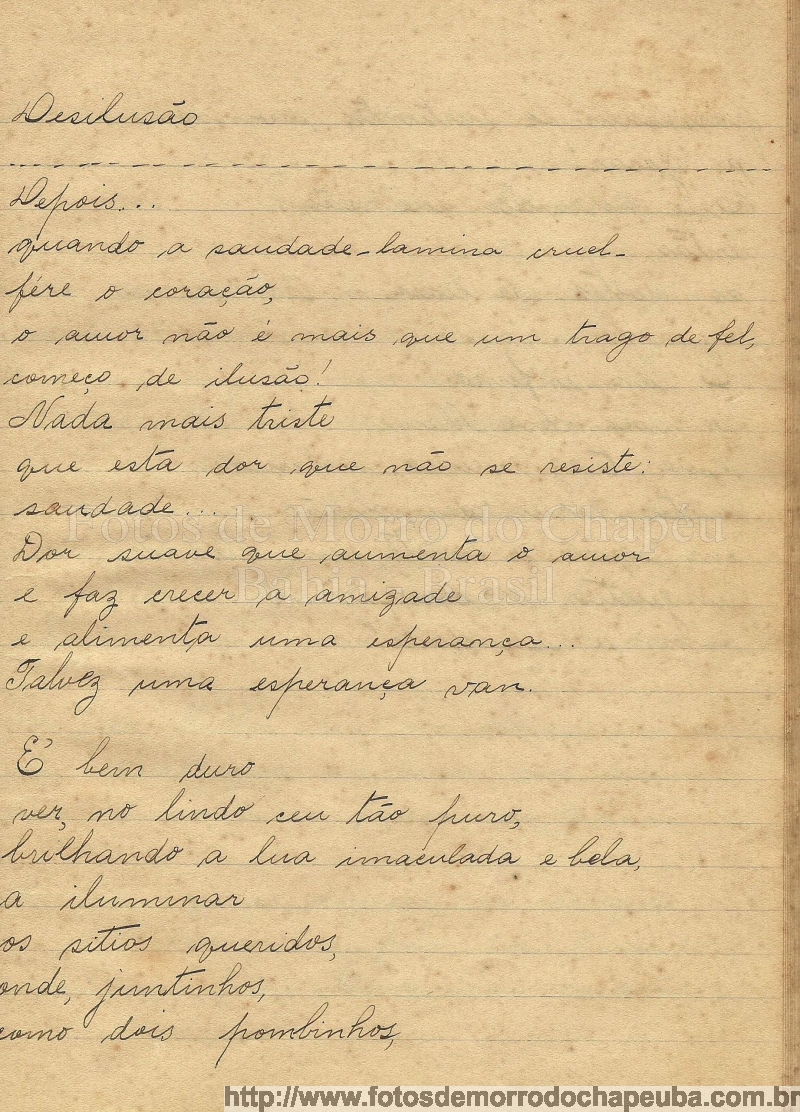 Desilusão
Depois...
quando a saudade - lamina cruel -
fére o coração,
o amor não é mais que um trago de fel,
começo de ilusão!
Nada mais triste
que esta dor que não se resiste:
saudade...
Fotos de Morro do Chapéu
Dor suave que aumenta o amor
Bahia - Brasil
e faz crecer a amizade
e alimenta uma esperança...
Talvez uma esperança van.
E' bem duro
ver, no lindo ceu tão puro,
brilhando a lua imaculada e bela,
a iluminar
os sitios queridos,
onde, juntinhos,
como dois pombinhos,
http://www.fotosdemorrodochapeuba.com.br